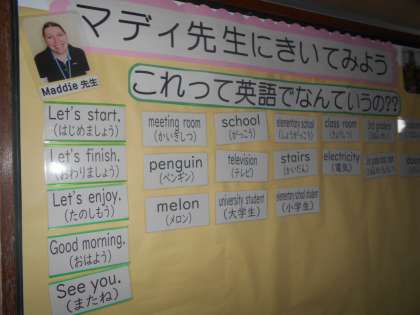 マディ先生にきいてみよう
これって英語でなんていうの??
Maddie 先生
Let's start.
(はじめましょう)
Let's finish.
(おわりましょう)
Let's enjoy.
(たのしもう)
Good morning.
(おはよう)
See you.
(またね)
meeting room
(かいぎしつ)
school
(がっこう)
elementary school
(しょうがっこう)
class room
(きょうしつ)
penguin
(ペンギン)
television
(テレビ)
stairs
(かいだん)
electricity
(電気)
melon
(メロン)
university student
(大学生)
elementary school student
(小学生)